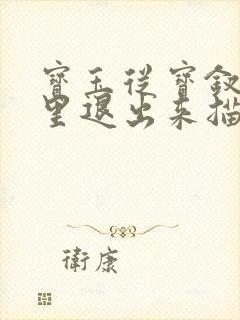 寶玉從寶釵
里退出來描
衛康